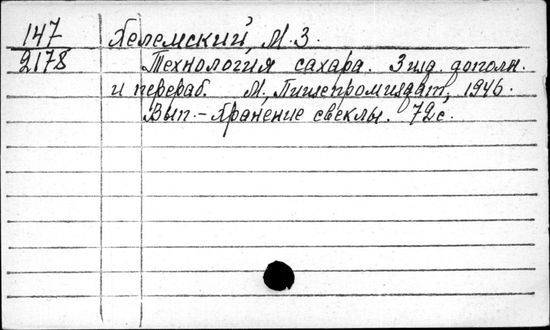 147 Хелемский, М.З.
2178 Технология сахара. 3 изд. дополн.
и перераб. М., Пищепромиздат, 1946.
Вып.- Хранение свеклы. 72с.